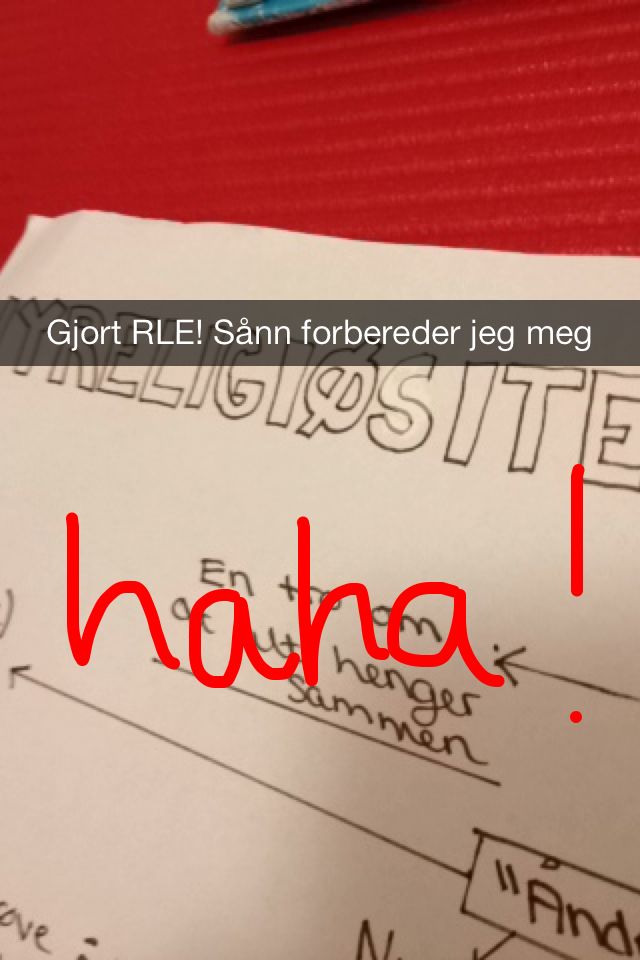 Gjort RLE! Sånn forbereder jeg meg
YRELIGIØSITE
haha!
En tro om
at alt henger
sammen
"Ånd